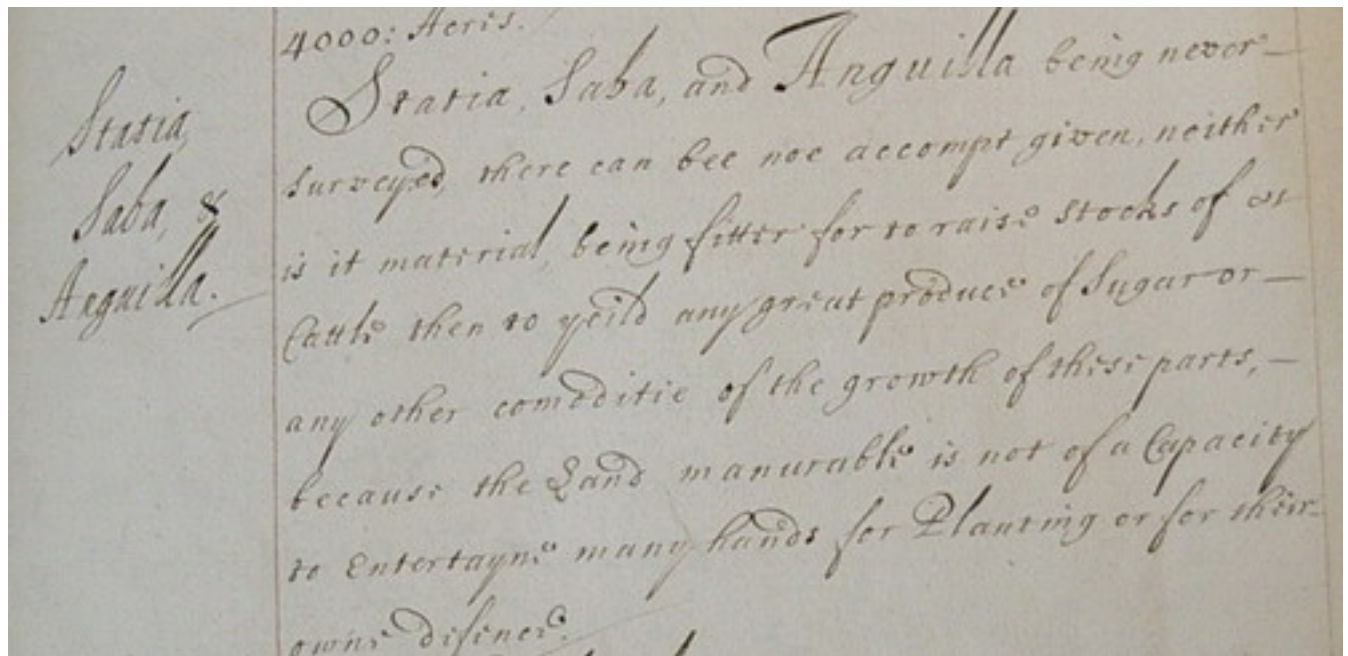 4000: Acres.
Statia,
Saba, &
Anguilla.
Statia, Saba, and Anguilla being never
surveyed, there can bee noe accompt given, neither
is it material, being fitter for to raise stocks of
Cattle then to yeild any great produce of Sugar or
any other comoditie of the growth of these parts,
because the Land manurable is not of a Capacity
to Entertayne many hands for Planting or for their
owne defence.